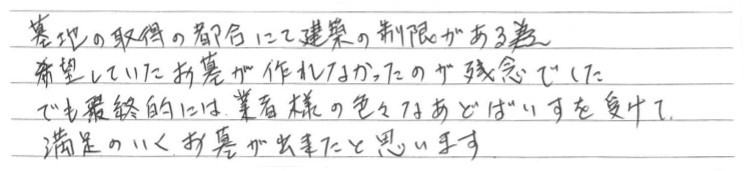 墓地の取得の都合にて建築の制限がある為
希望していたお墓が作れなかったのが残念でした
でも最終的には、業者様の色々なあどばいすを受けて、
満足のいくお墓が出来たと思います